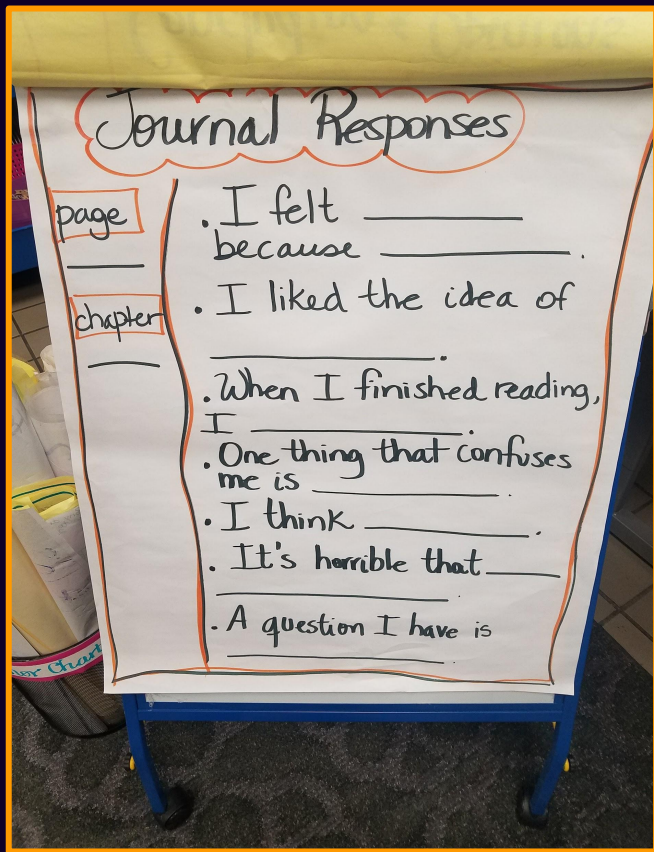 Journal Responses
page
chapter
. I felt ________
because ________.
. I liked the idea of
________.
. When I finished reading,
I ________.
. One thing that confuses
me is ________.
. I think ________.
. It's horrible that ____
________.
. A question I have is
________.
Chart